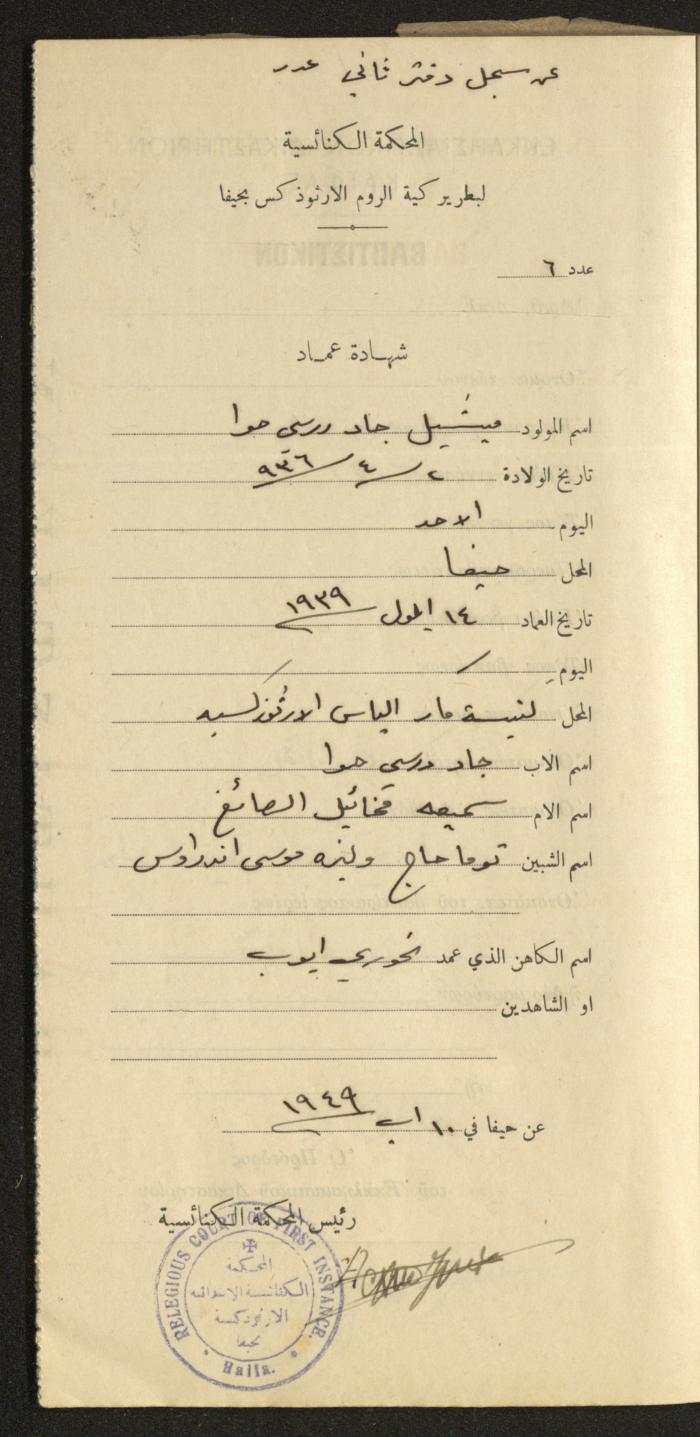 عن سجل دفتر ثاني عدد
المحكمة الكنائسية
لبطريركية الروم الارثوذكس بحيفا
عدد ٦
شهادة عماد
اسم المولود ميشيل جاد مرسي حوا
تاريخ الولادة ٢/٤/٩٣٦
اليوم الاحد
المحل حيفا
تاريخ العماد ١٤ ايلول ١٩٣٩
اليوم
المحل كنيسة مار الياس الارثوذكسيه
اسم الاب جاد مرسي حوا
اسم الام سميعه مخائيل الصائغ
اسم الشبين توما حاج وليزه موسى اندراوس
اسم الكاهن الذي عمد خوري ايوب
او الشاهدين
عن حيفا في ١٠ اب ١٩٤٩
رئيس المحكمة الكنائسية
RELEGIOUS COURT OF FIRST INSTANCE.
المحكمة
الكنائسية الابتدائيه
الارثوذكسية
بحيفا
Haifa.